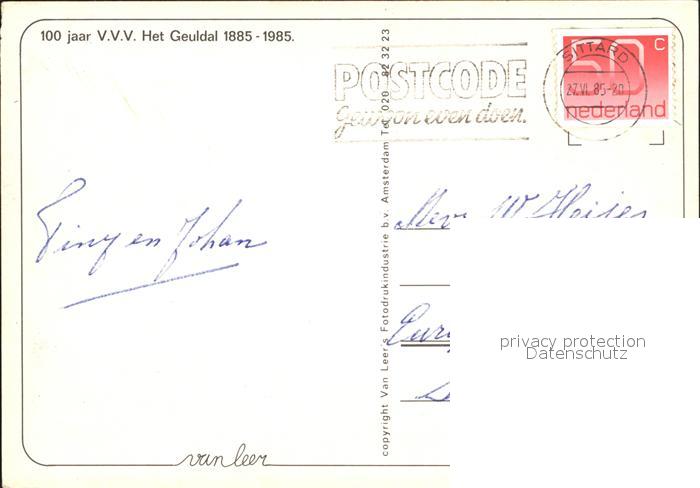 100 jaar V.V.V. Het Geuldal 1885-1985.
POSTCODE
gewoon even doen.
SITTARD
27.VI. 85-20
50 c
nederland
Tiny en Johan
Mevr W
copyright Van Leer's Fotodrukindustrie b.v. Amsterdam Tel. 020 - 82 32 23
privacy protection
Datenschutz
van leer